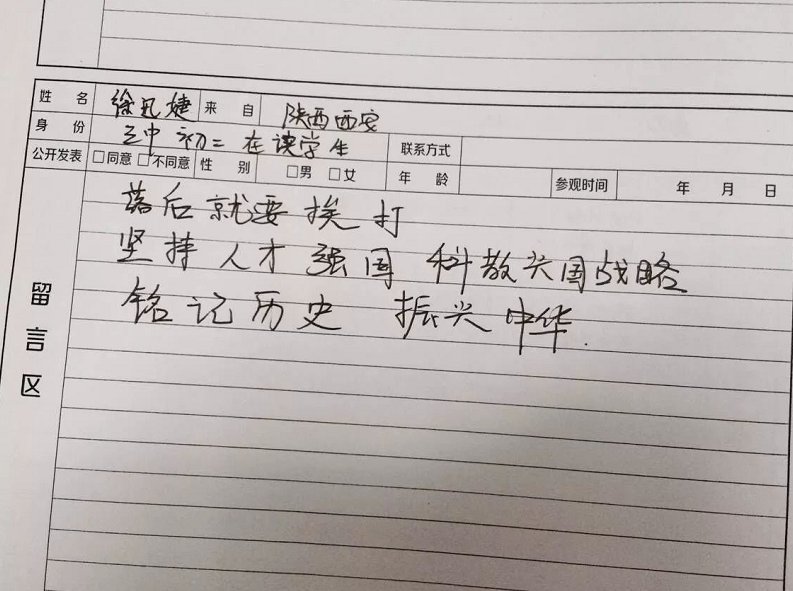 姓 名 徐 婕 来 自 陕西西安
身 份 三中 初二 在读学生 联系方式
公开发表 □同意 □不同意 性 别 □男 □女 年 龄 参观时间 年 月 日
落后就要挨打
坚持人才强国 科教兴国战略
铭记历史 振兴中华.
留言区